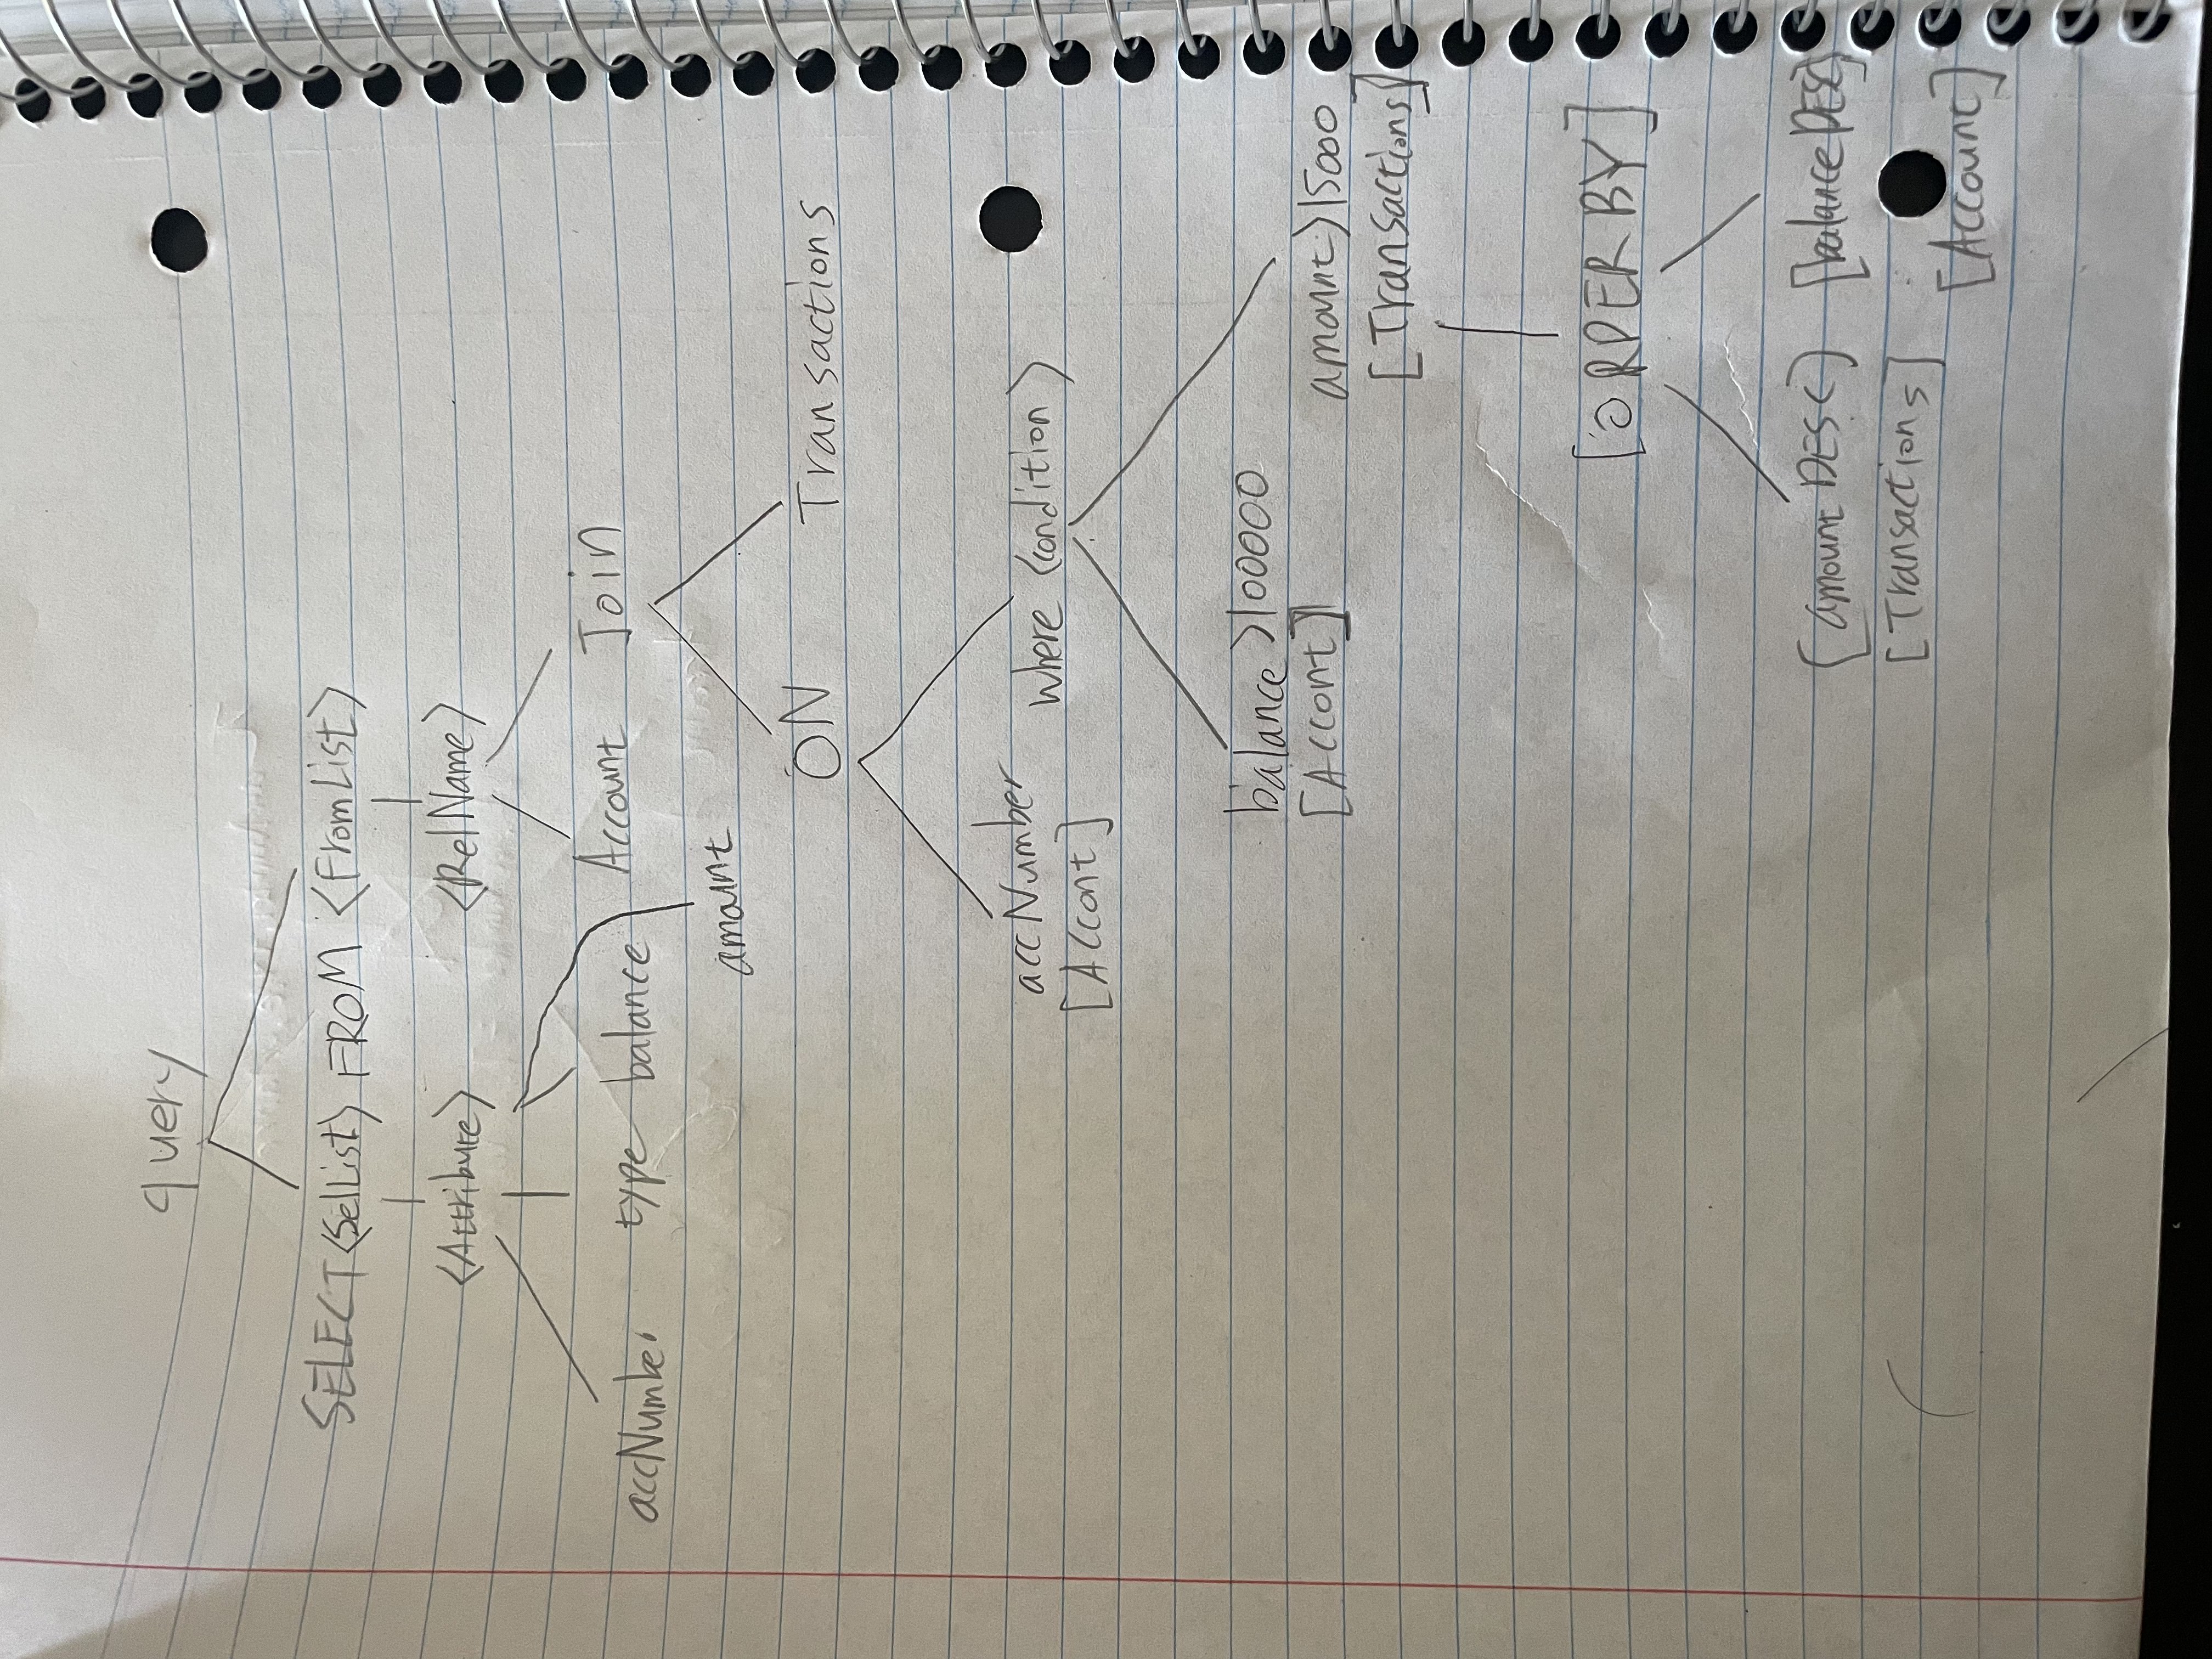 query
SELECT <SelList> FROM <FromList>
<Attribute> <RelName>
accNumber type balance Account Join
amount
ON Transactions
accNumber where <condition>
[Accont]
balance >100000
[Accont] amount>15000
[Transactions]
[ORDER BY]
[amount DESC] [balance DESC]
[Transactions]
[Account]